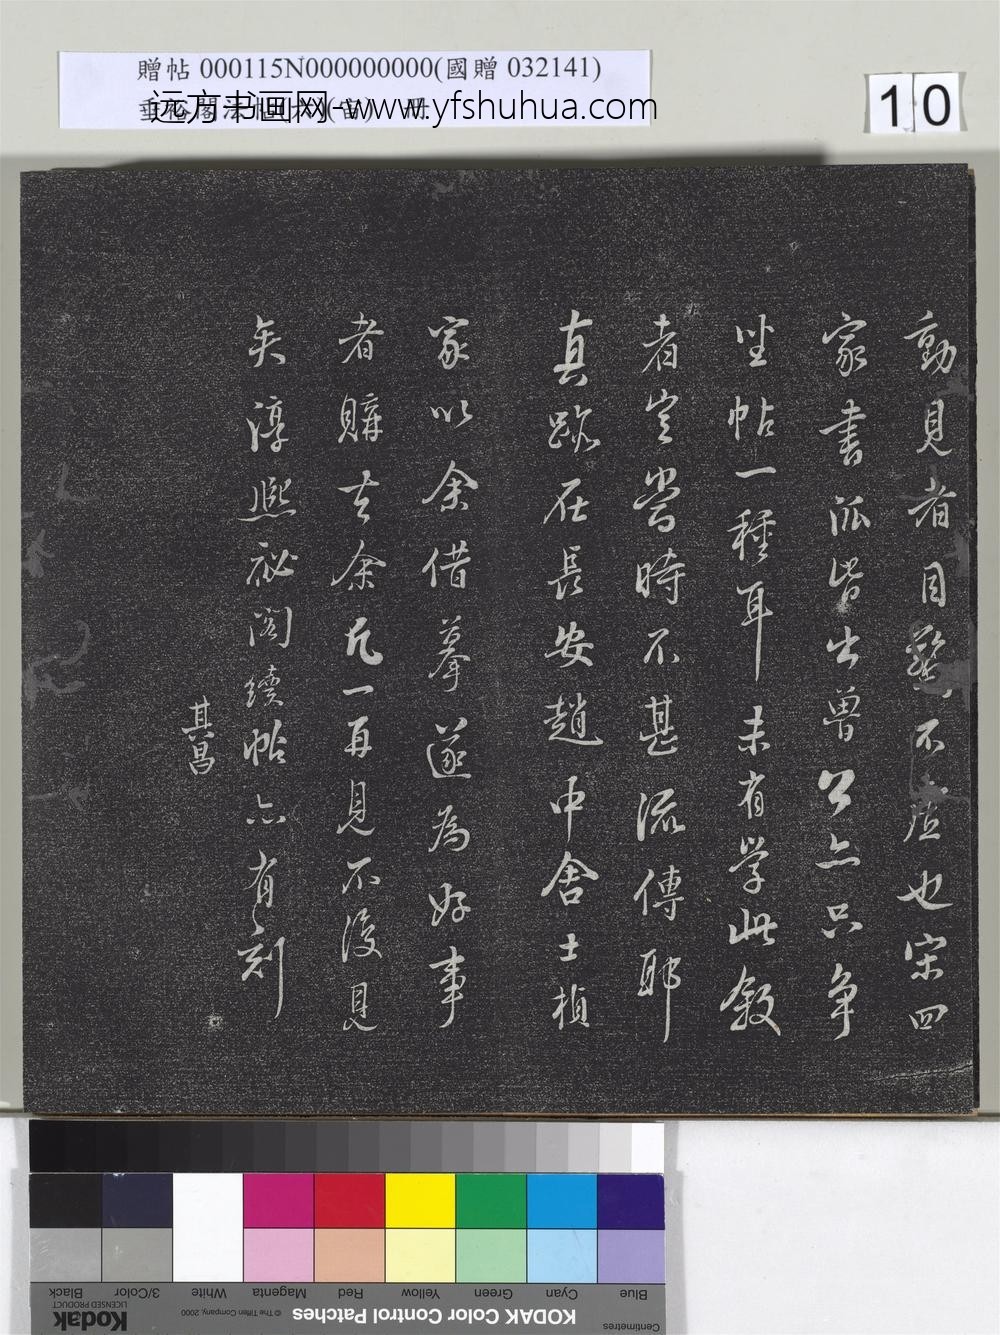 贈帖 000115N000000000(國贈 032141)
远方书画网-www.yfshuhua.com
10
動見者目驚不虛也宋四
家書派皆出魯公亦只爭
坐帖一種耳未有学此叙
者豈當時不甚流傳耶
真跡在長安趙中舍士楨
家以余借摹遂為好事
者購去余凡一再見不復見
矣淳熙祕閣續帖亦有刻
其昌
Blue
Cyan
Green
Yellow
Red
Magenta
White
3/Color
Black
Centimetres
KODAK Color Control Patches
© The Tiffen Company, 2000
Kodak
LICENSED PRODUCT